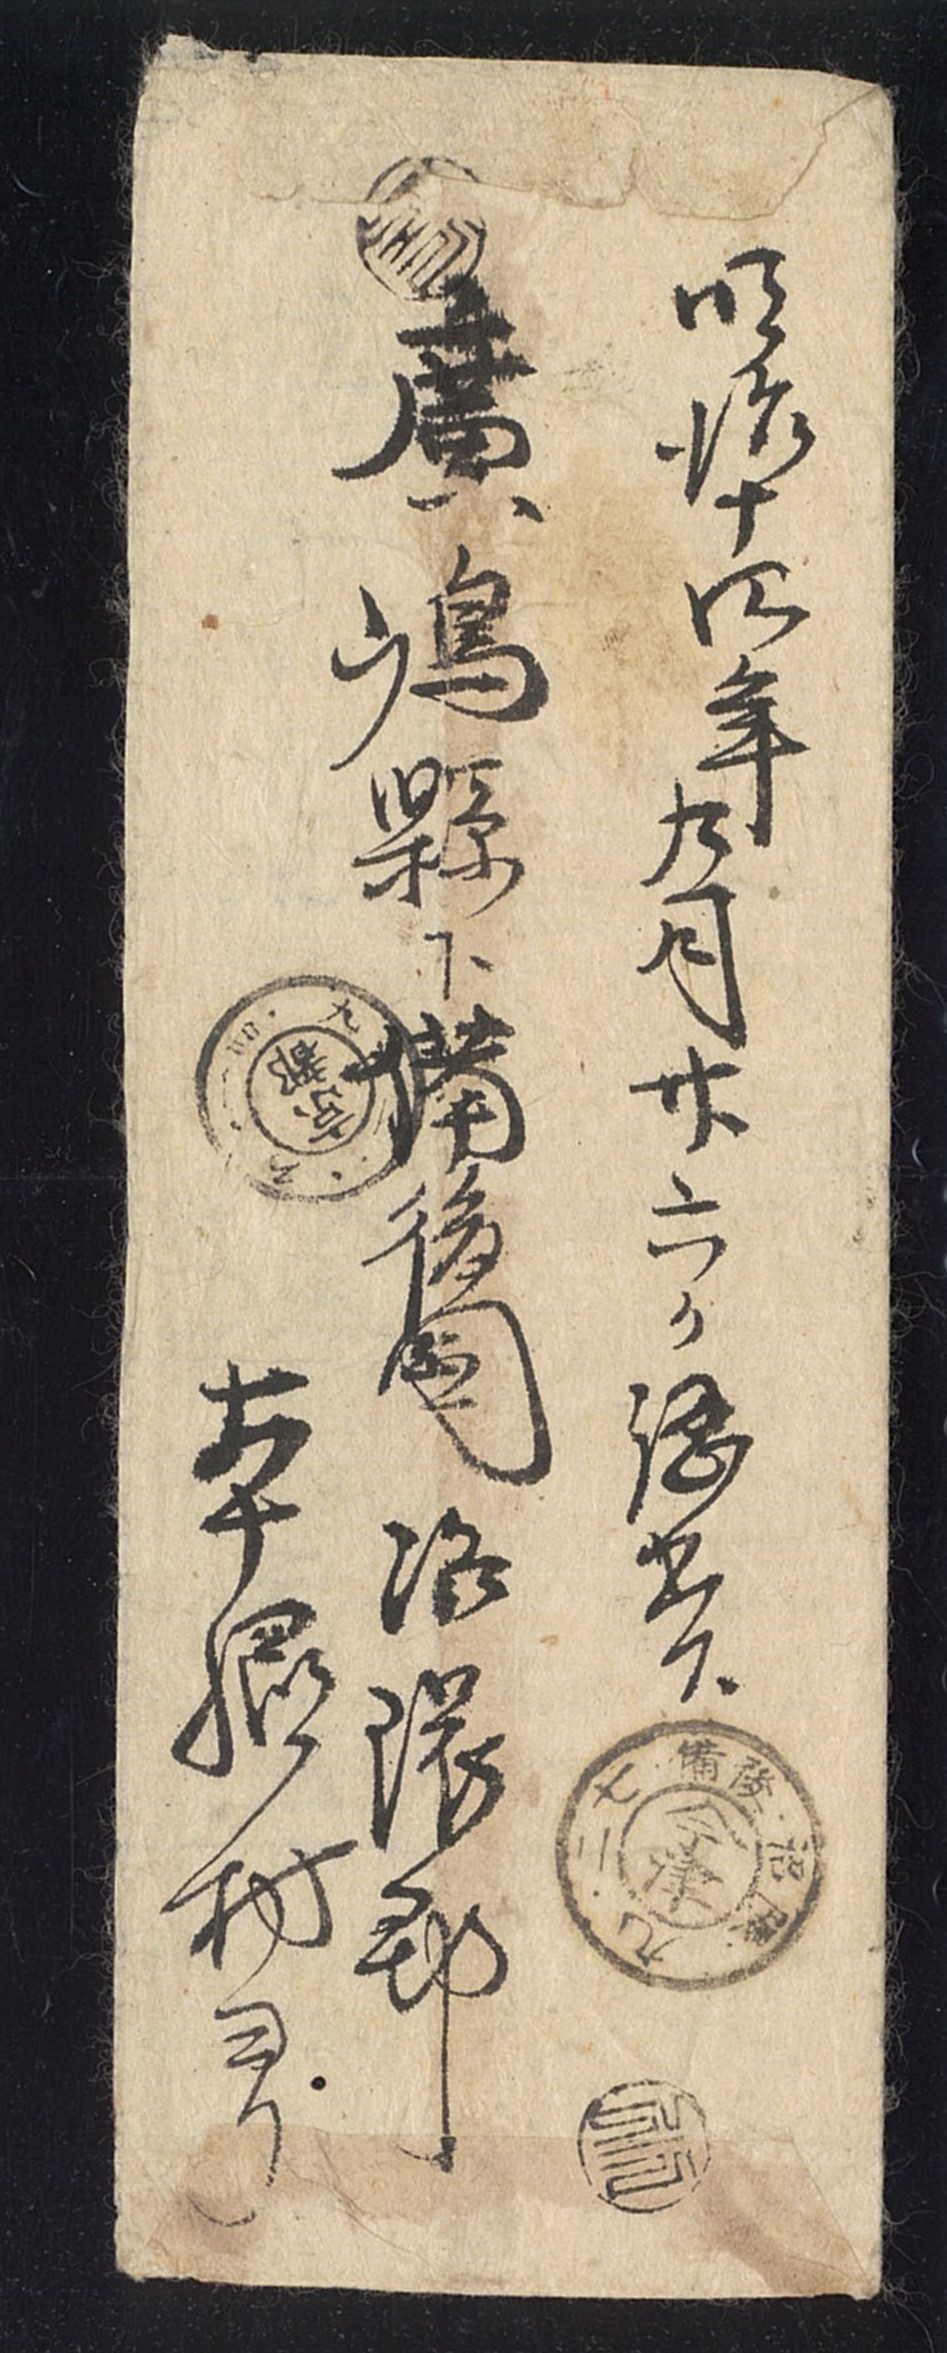 明治十四年九月廿六日
廣嶋縣下備後國沼隈郡
本郷村ヨリ
備後・沼隈・九・二七
今津
東京